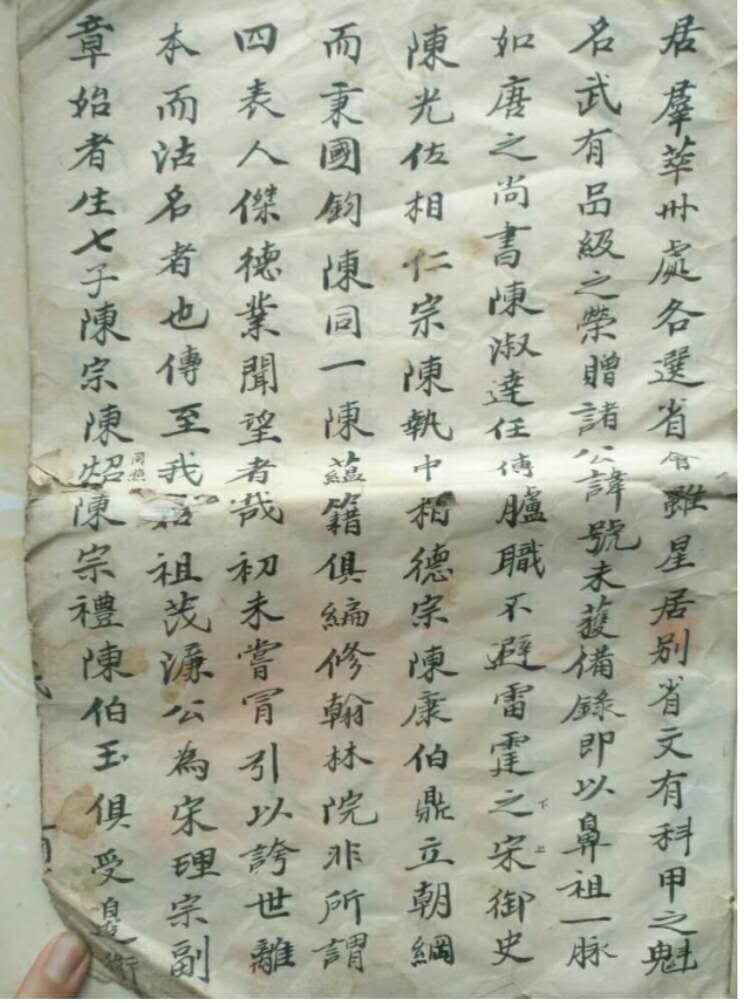 居羣萃卅處各選省會雖星居别省文有科甲之魁
名武有品級之榮贈諸公諱號未獲備錄即以鼻祖一脉
如唐之尚書陳淑達任傳臚職不避雷霆之下上宋御史
陳光佐相仁宗陳執中相德宗陳康伯鼎立朝綱
而秉國鈞陳同一陳蘊籍俱編修翰林院非所謂
四表人傑德業聞望者哉初未嘗冒引以誇世離
本而沽名者也傳至我祖茂濂公為宋理宗副
章始者生七子陳宗陳炤陳宗禮陳伯玉俱受